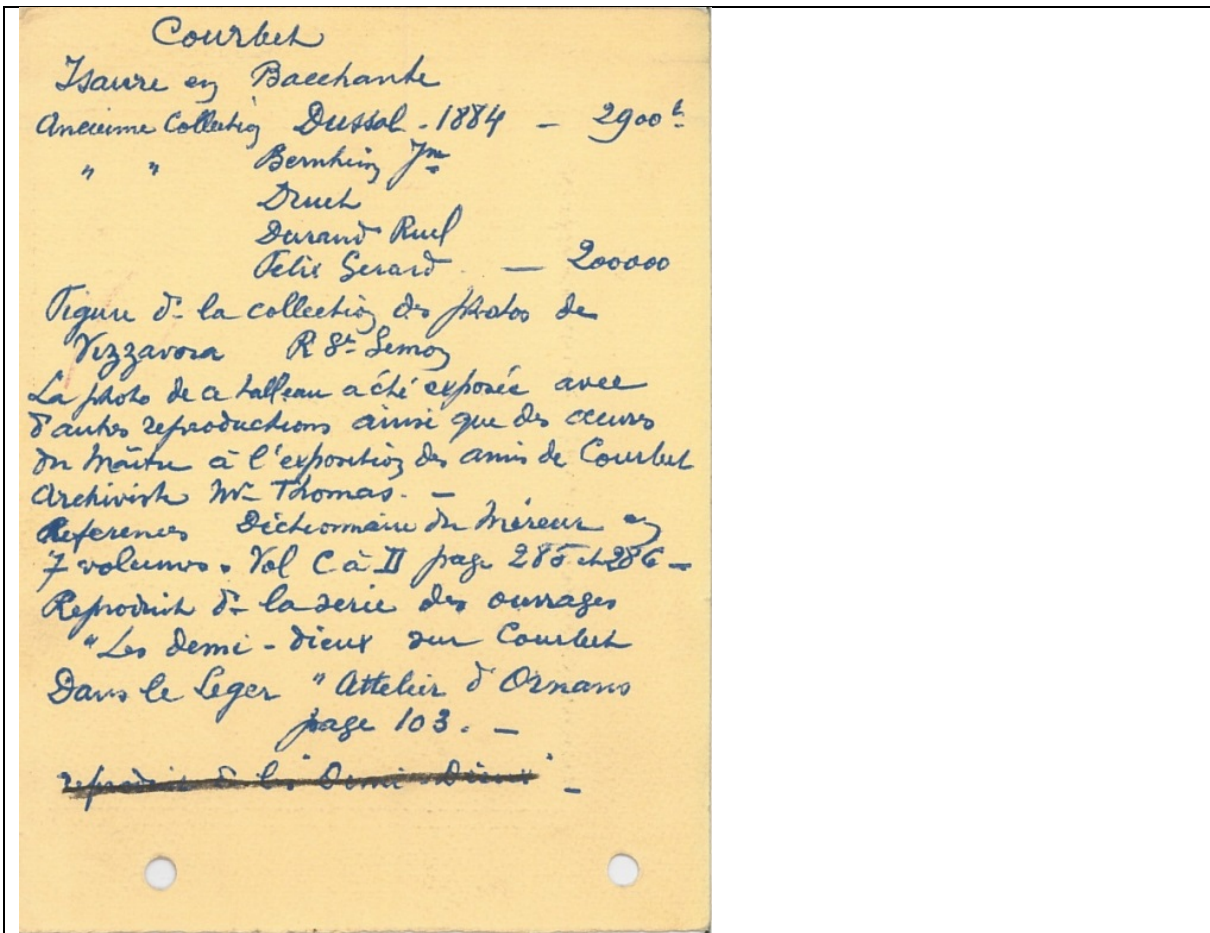 Courbet
Isaure en Bacchante
Ancienne Collection Dussol - 1884 — 2900 f.
" " Bernheim Jne
Druet
Durand Ruel
Felix Gerard — 200000
Figure ds la collection des photos de
Vizzavona R St. Semon
La photo de ce tableau a été exposée avec
d'autres reproductions ainsi que des œuvres
du Maître à l'exposition des amis de Courbet
Archiviste Mr Thomas. —
References Dictionnaire du Mireur en
7 volumes. Vol C à D page 285 et 286 —
Reproduit ds la serie des ouvrages
"Les Demi-dieux sur Courbet
Dans le Leger "Attelier d'Ornans
page 103. —
reproduit ds les "Demi-Dieux" —